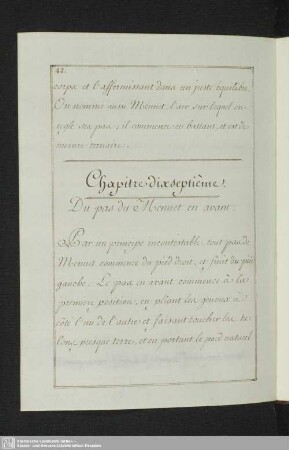 42.
corps et l'affermissant dans un juste équilibre.
On nomme aussi Menuet, l'air sur lequel on
règle ses pas; il commence en battant, et est de
mesure ternaire.
Chapitre dixseptième.
Du pas du Menuet en avant.
Par un principe incontestable, tout pas de
Menuet commence du pied droit, et finit du pied
gauche. Le pas en avant commence à la
première position, en pliant les genoux à
côté l'un de l'autre et faisant toucher les ta-
lons presque terre, et en portant le pied naturel